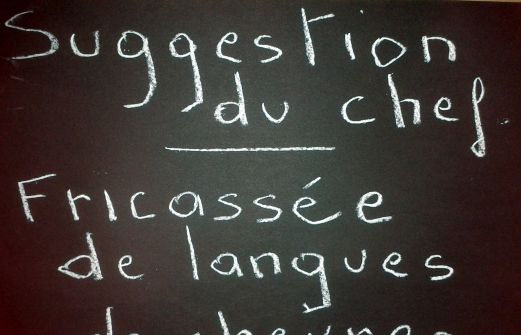 Suggestion
du chef.
Fricassée
de langues